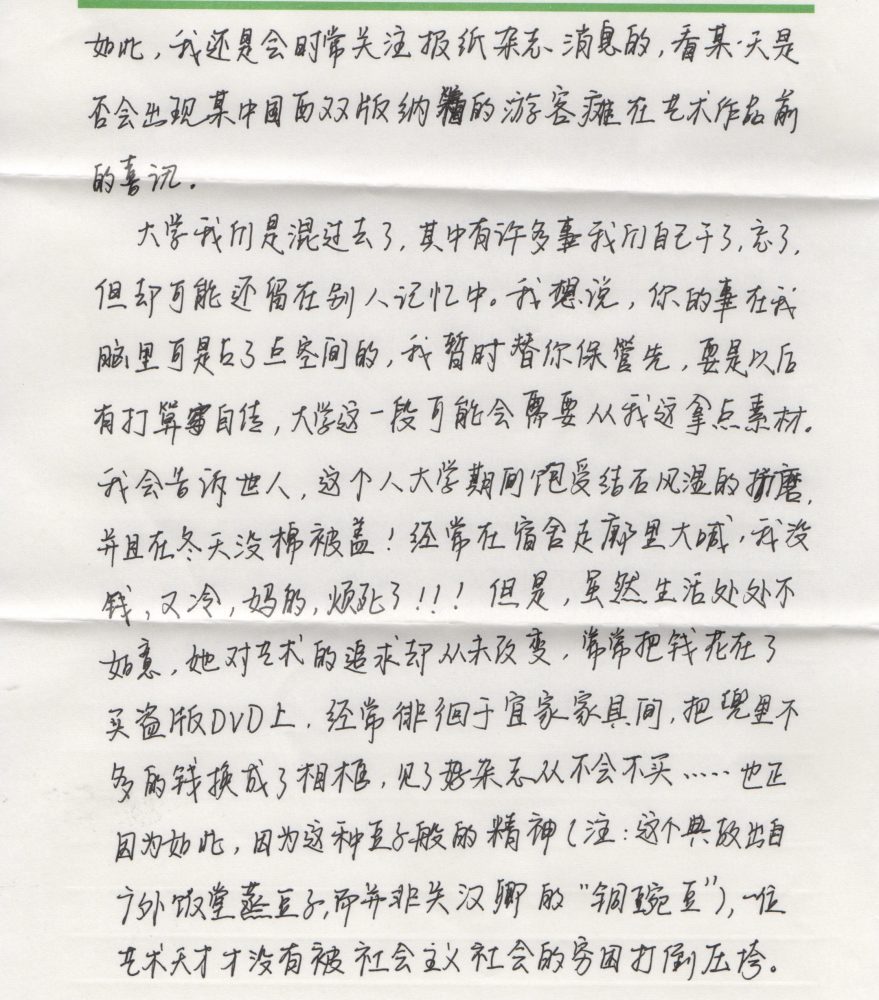 如此，我还是会时常关注报纸杂志消息的，看某一天是
否会出现某中国西双版纳籍的游客瘫在艺术作品前
的喜讯。
大学我们是混过去了，其中有许多事我们自己干了，忘了，
但却可能还留在别人记忆中。我想说，你的事在我
脑里可是占了点空间的，我暂时替你保管先，要是以后
有打算写自传，大学这一段可能会需要从我这拿点素材。
我会告诉世人，这个人大学期间饱受结石风湿的折磨，
并且在冬天没棉被盖！经常在宿舍走廊里大喊，我没
钱，又冷，妈的，烦死了！！！但是，虽然生活处处不
如意，她对艺术的追求却从未改变，常常把钱花在了
买盗版DVD上，经常徘徊于宜家家具间，把兜里不
多的钱换成了相框，见了好杂志从不会不买……也正
因为如此，因为这种豆子般的精神（注：这个典故出自
广外饭堂蒸豆子，而并非关汉卿的“铜豌豆”），一位
艺术天才才没有被社会主义社会的穷困打倒压垮。